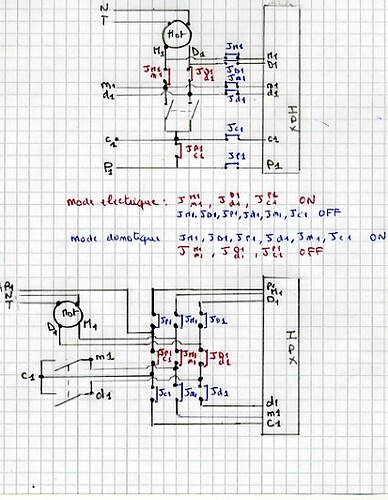 N
T
Mot
M1 D1
JM1 M1
JD1 D1
JM1 m1 JD1 d1
m1 Jm1 m1
d1 Jd1 d1
IPX
c1 Jc1 c1
JP1 c1
P1 JP1 P1
mode électrique : JM1 m1, JD1 d1, JP1 c1 ON
JM1, JD1, JP1, Jd1, Jm1, Jc1 OFF
mode domotique JM1, JD1, JP1, Jd1, Jm1, Jc1 ON
JM1 m1, JD1 d1, JP1 c1 OFF
P1 P1
N M1
T D1
Mot
D1 M1
JP1 JM1 JD1
IPX
m1 JP1 c1 JM1 m1 JD1 d1
c1
d1 Jc1 Jm1 Jd1
d1
m1
c1